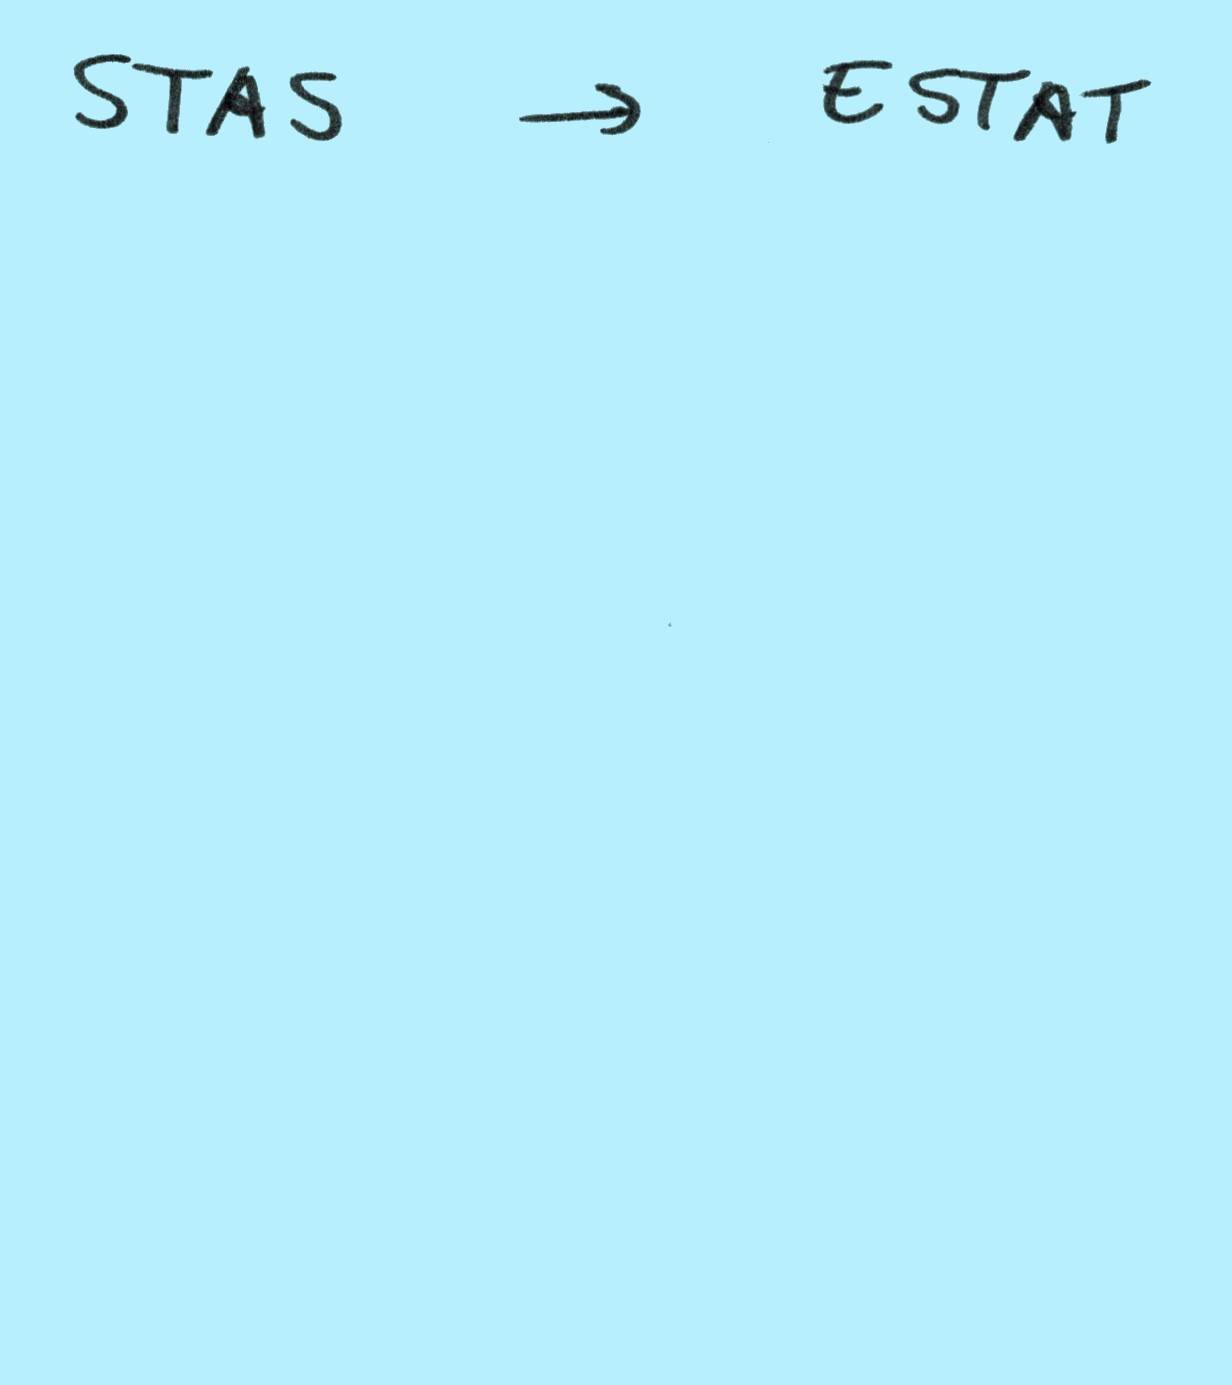 STAS → ESTAT